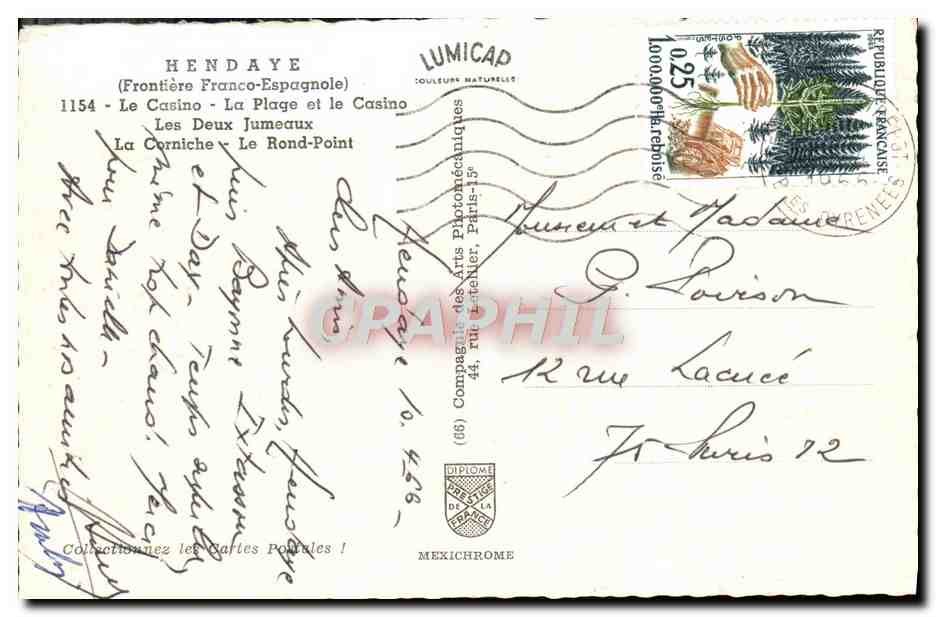 HENDAYE
(Frontière Franco-Espagnole)
1154 - Le Casino - La Plage et le Casino
Les Deux Jumeaux
La Corniche - Le Rond-Point
LUMICAP
COULEURS NATURELLES
REPUBLIQUE FRANÇAISE
1965
0,25
1.000.000e ha. reboisé
PYRENEES
Hendaye 10.4-66-
Chers Amis
Après Lourdes, Hendaye
puis Bayonne
et Dax - Temps
même trop chaud. Merci
pour Danielle -
Avec toutes nos amitiés
(66) Compagnie des Arts Photomécaniques
44, rue Letellier, Paris-15e
Monsieur et Madame
G. Poirson
12 rue Lacuée
75 Paris 12
DIPLOME
PRESTIGE
DE LA
FRANCE
MEXICHROME
Collectionnez les Cartes Postales !
CPAPHIL